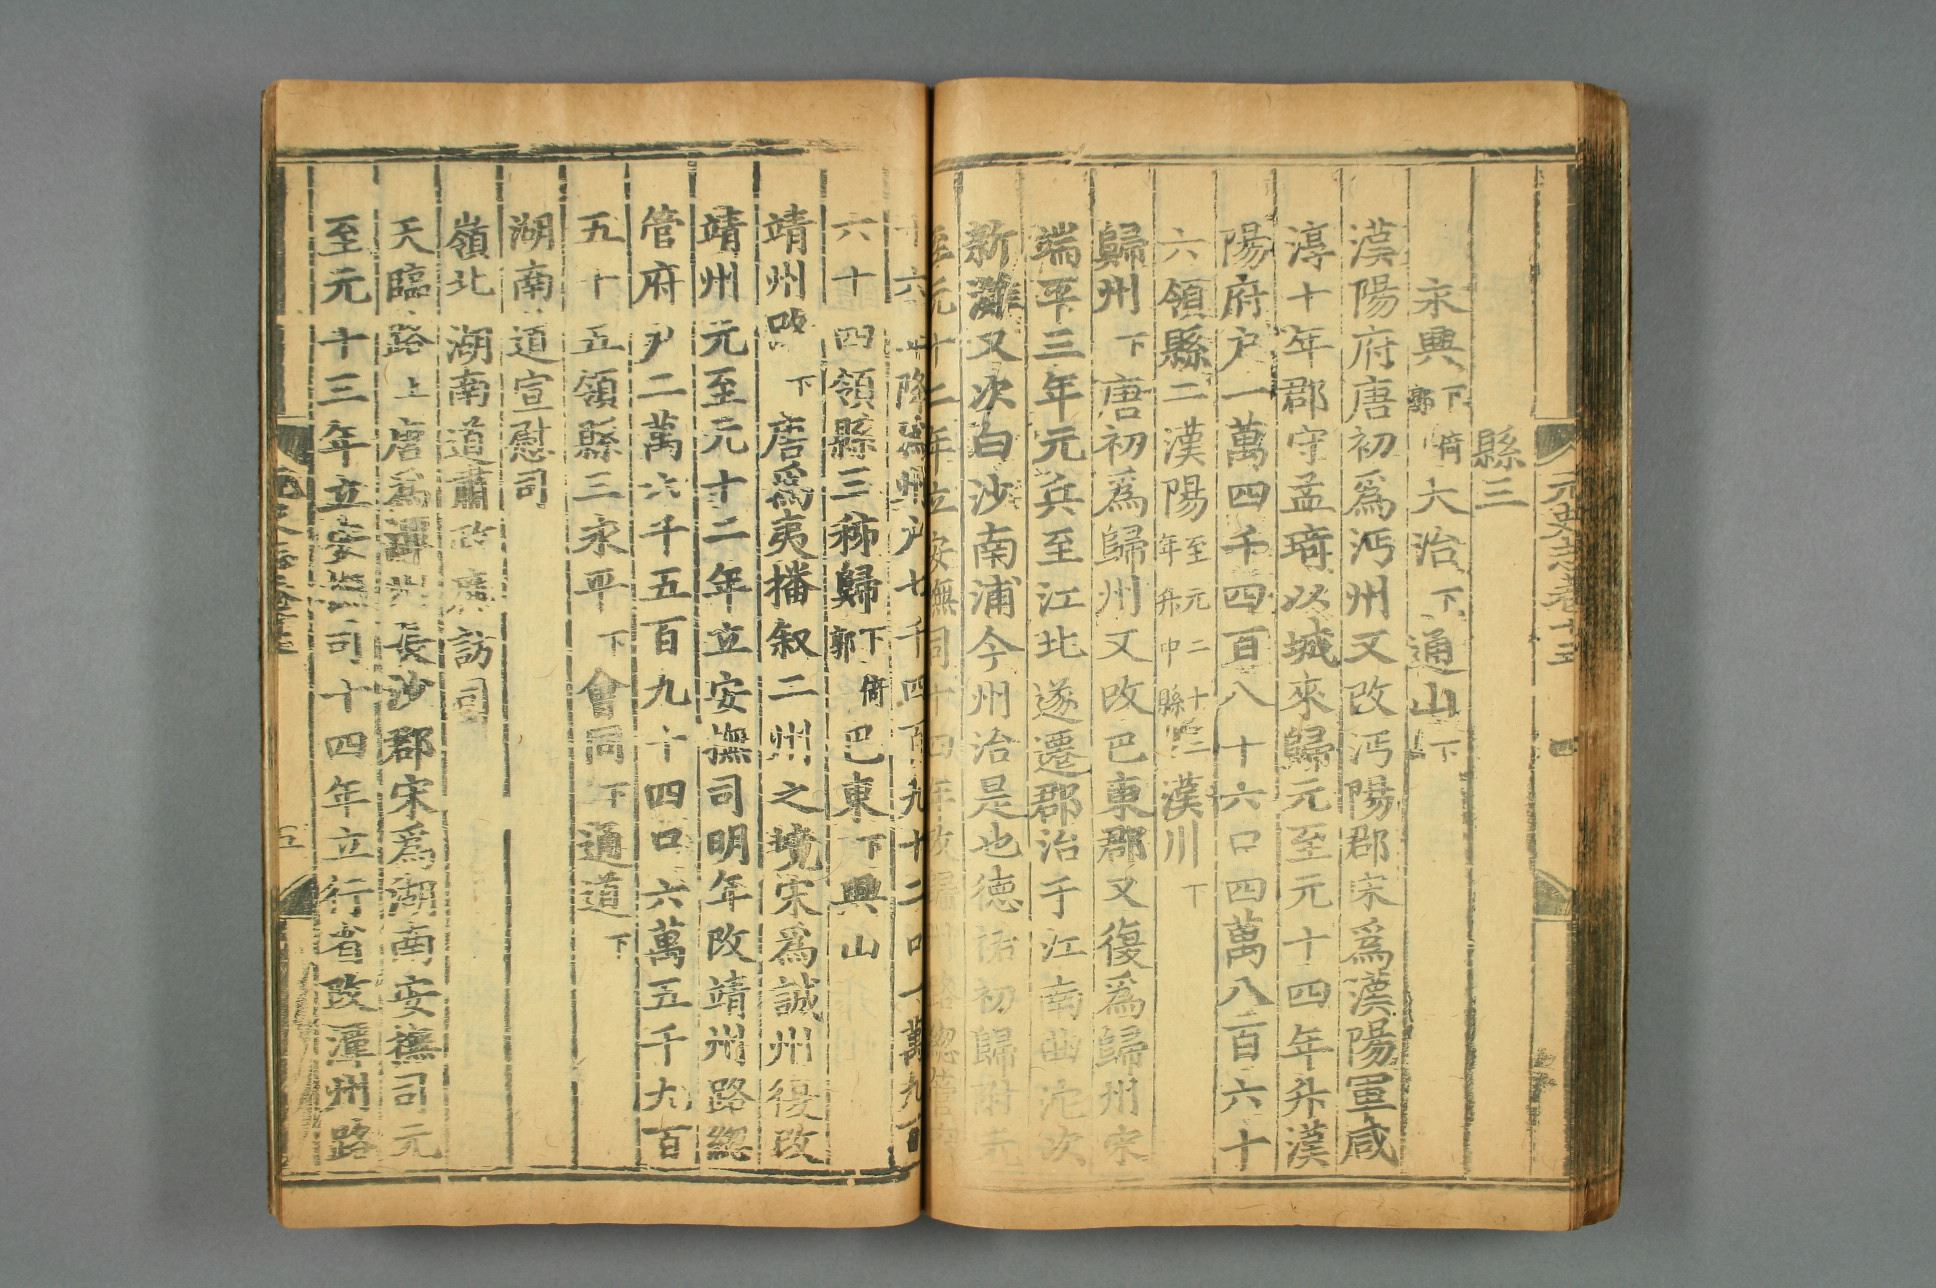 元史志卷十五 四
縣三
永興下倚郭大冶下通山下
漢陽府唐初爲沔州又改沔陽郡宋爲漢陽軍咸
淳十年郡守孟琦以城來歸元至元十四年升漢
陽府戶一萬四千四百八十六口四萬八百六十
六領縣二漢陽至元二十二年升中縣漢川下
歸州下唐初爲歸州又改巴東郡又復爲歸州宋
端平三年元兵至江北遂遷郡治于江南曲沱次
新灘又次白沙南浦今州治是也德祐初歸附未
至元十二年立安撫司十四年改歸州路總管府
十六年降爲州戶七千四百九十二口一萬九百
六十四領縣三秭歸下倚郭巴東下興山
靖州路下唐爲夷播叙二州之境宋爲誠州復改
靖州元至元十二年立安撫司明年改靖州路總
管府戶二萬六千五百九十四口六萬五千九百
五十五領縣三永平下會同下通道下
湖南道宣慰司
嶺北湖南道肅政廉訪司
天臨路上唐爲潭州長沙郡宋爲湖南安撫司元
至元十三年立安撫司十四年立行省改潭州路
元史志卷十五 五